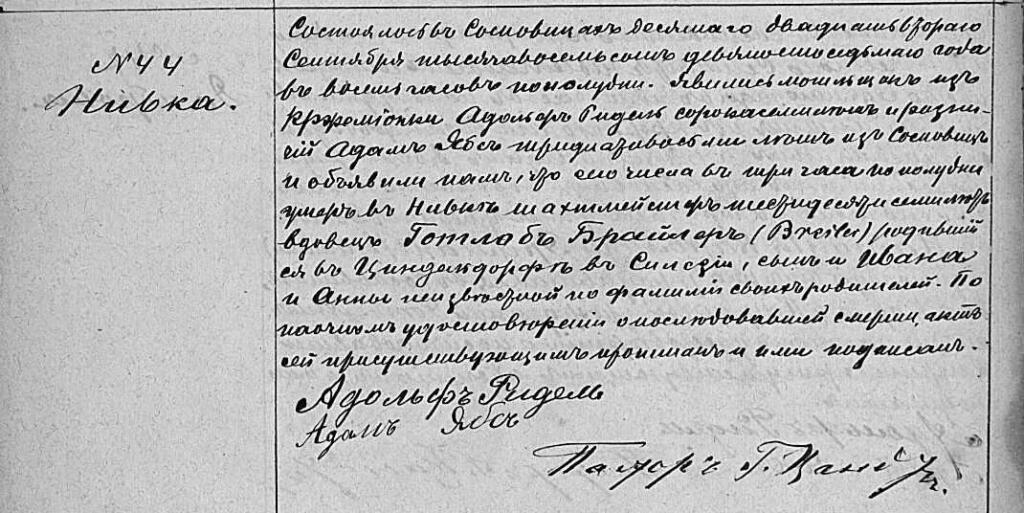 N 44
Нивка.
Состоялось въ Сосновицахъ десятаго двадцать втораго
Сентября тысяча восемьсотъ девяносто седьмаго года
въ восемь часовъ пополудни. Явились изъ
Адольфъ Ридель сорока семи лѣтъ и рѣзни-
Адамъ Ябсъ тридцати лѣтъ изъ Сосновицъ
и объявили намъ, что сего числа въ три часа пополудни
умеръ въ Нивкѣ шахтмейстеръ шестидесяти семи лѣтъ
вдовецъ Готлабъ Брайлеръ (Breiler) родивший
ся въ Циндендорфѣ въ Силезіи, сынъ Ивана
и Анны неизвѣстной по фамиліи своихъ родителей. По
наочномъ удостовѣреніи о послѣдовавшей смерти, актъ
сей присутствующимъ прочитанъ и ими подписанъ.
Адольфъ Ридель
Адамъ Ябсъ
Пасторъ Г.